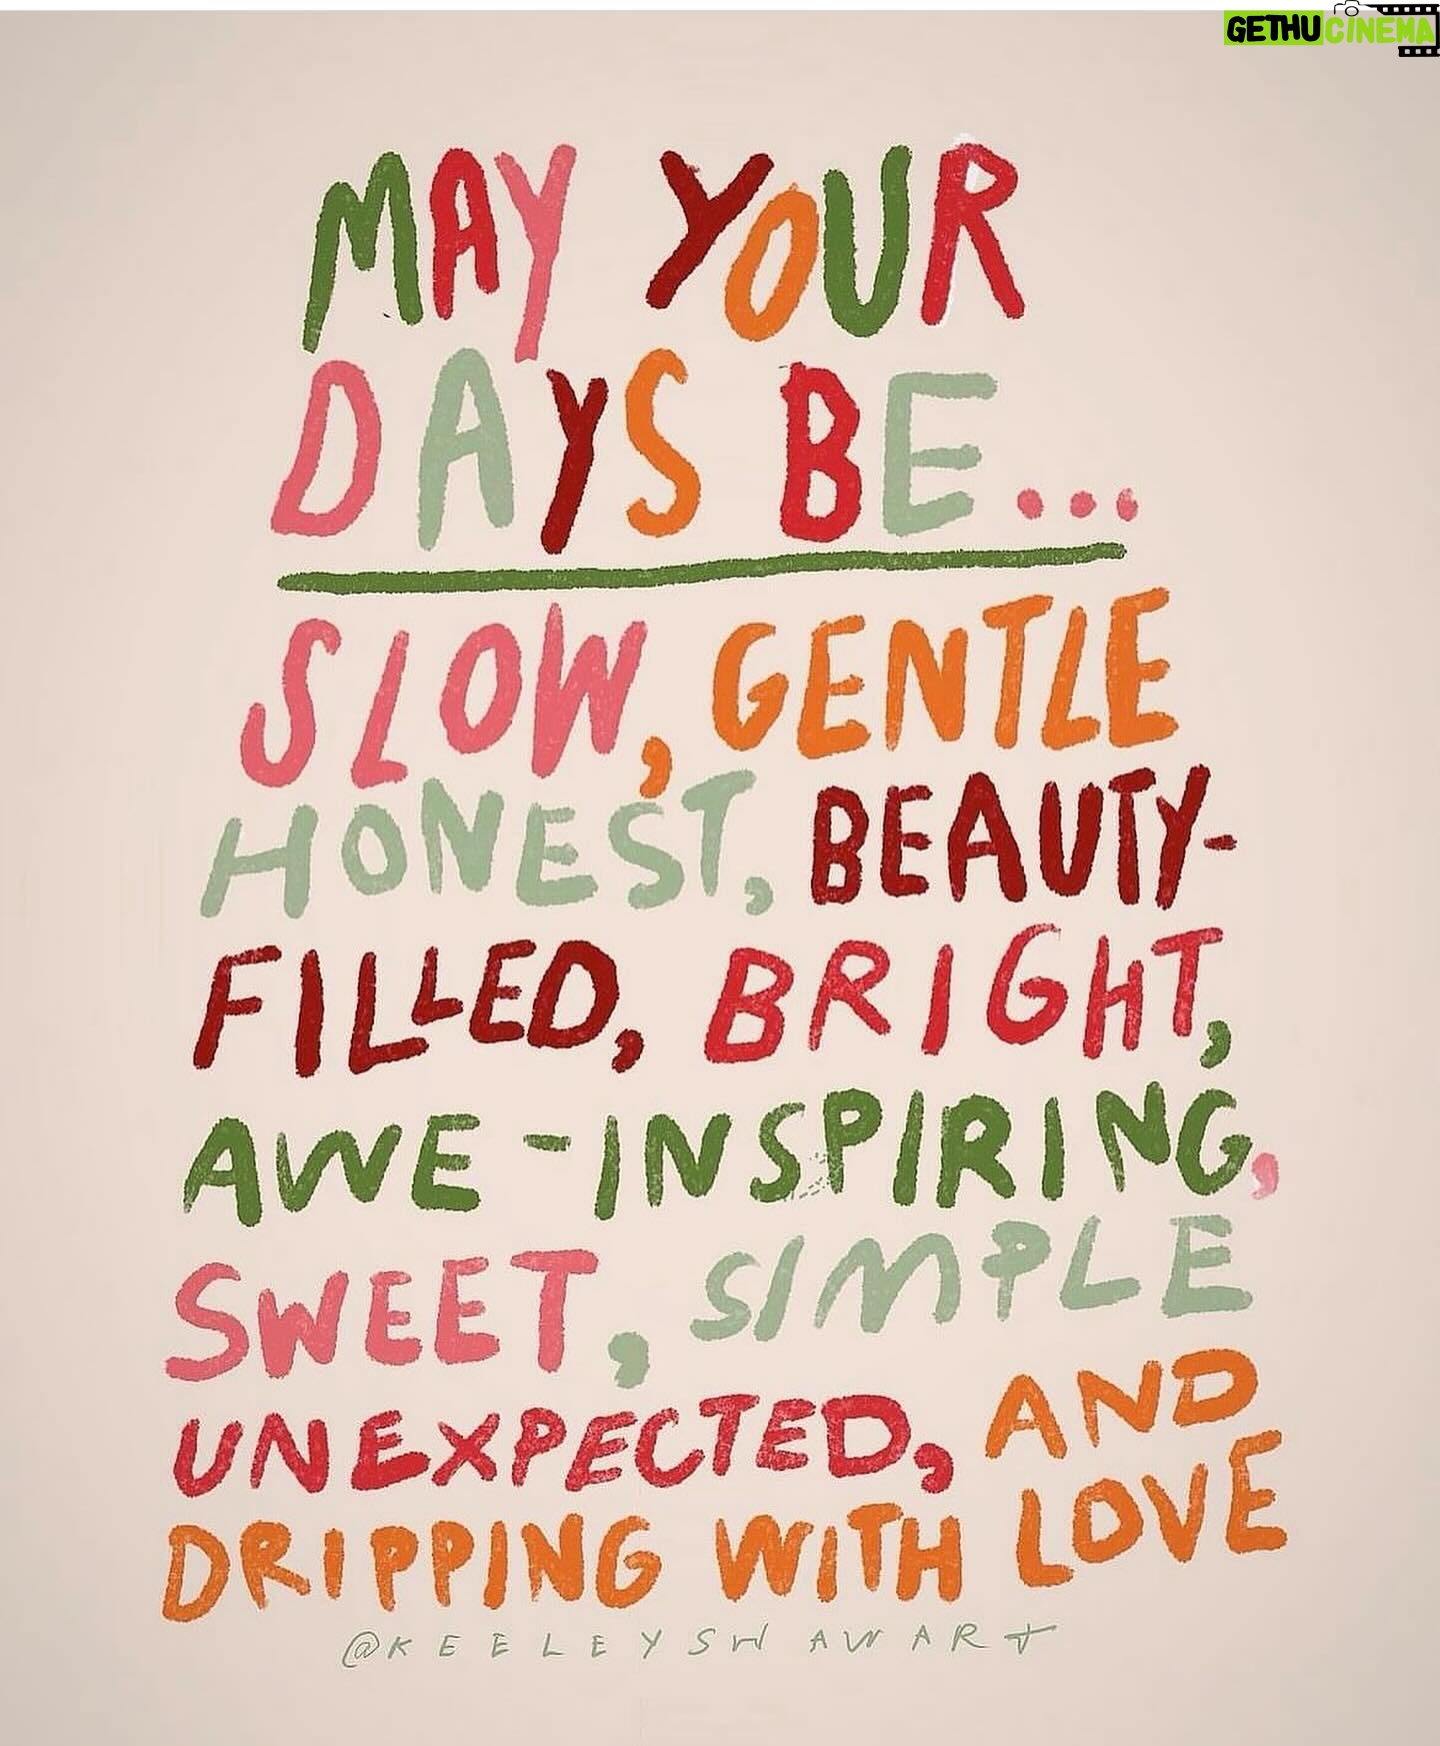 GETHUCINEMA
MAY YOUR
DAYS BE...
SLOW, GENTLE
HONEST, BEAUTY-
FILLED, BRIGHT,
AWE-INSPIRING,
SWEET, SIMPLE
UNEXPECTED, AND
DRIPPING WITH LOVE
@KEELEYSHAWART